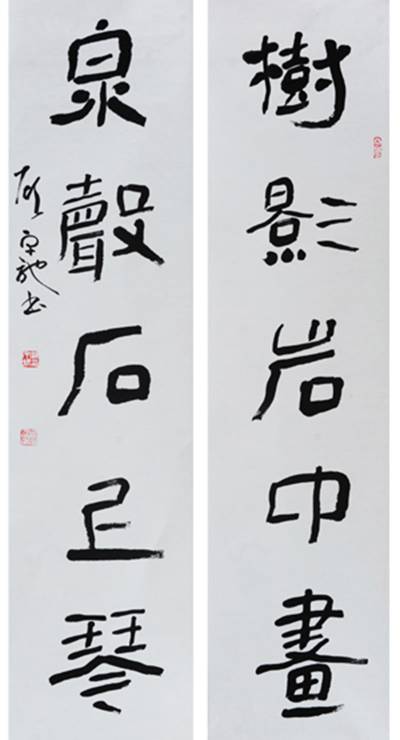 樹影岩中畫
泉聲石上琴